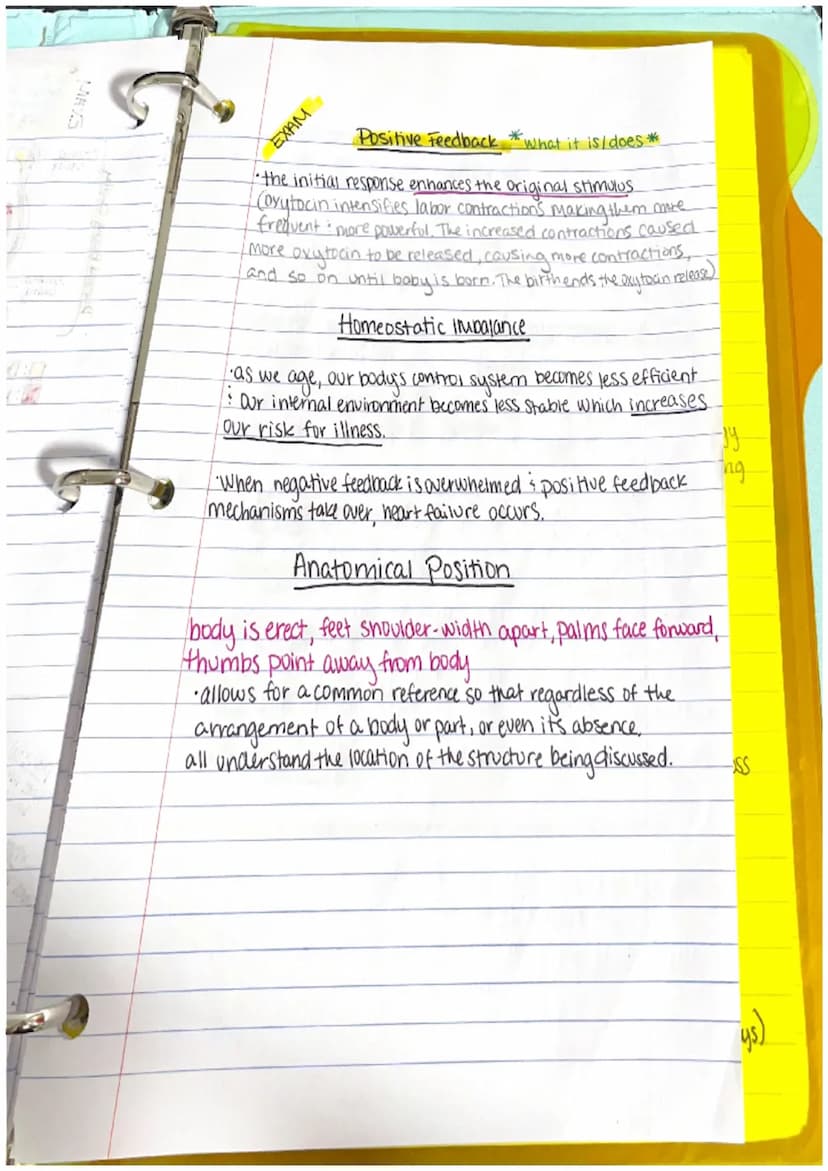 EXAM
Positive Feedback *what it is/does*
·the initial response enhances the original stimulus
(oxytocin intensifies labor contractions making them more
frequent & more powerful. The increased contractions caused
more oxytocin to be released, causing more contractions,
and so on until baby is born. The birth ends the oxytocin release)
Homeostatic Imbalance
·as we age, our body's control system becomes less efficient
& our internal environment becomes less stable which increases
our risk for illness.
·When negative feedback is overwhelmed & positive feedback
mechanisms take over, heart failure occurs.
Anatomical Position
body is erect, feet shoulder-width apart, palms face forward,
thumbs point away from body
·allows for a common reference so that regardless of the
arrangement of a body or part, or even its absence,
all understand the location of the structure being discussed.
ng
ys)